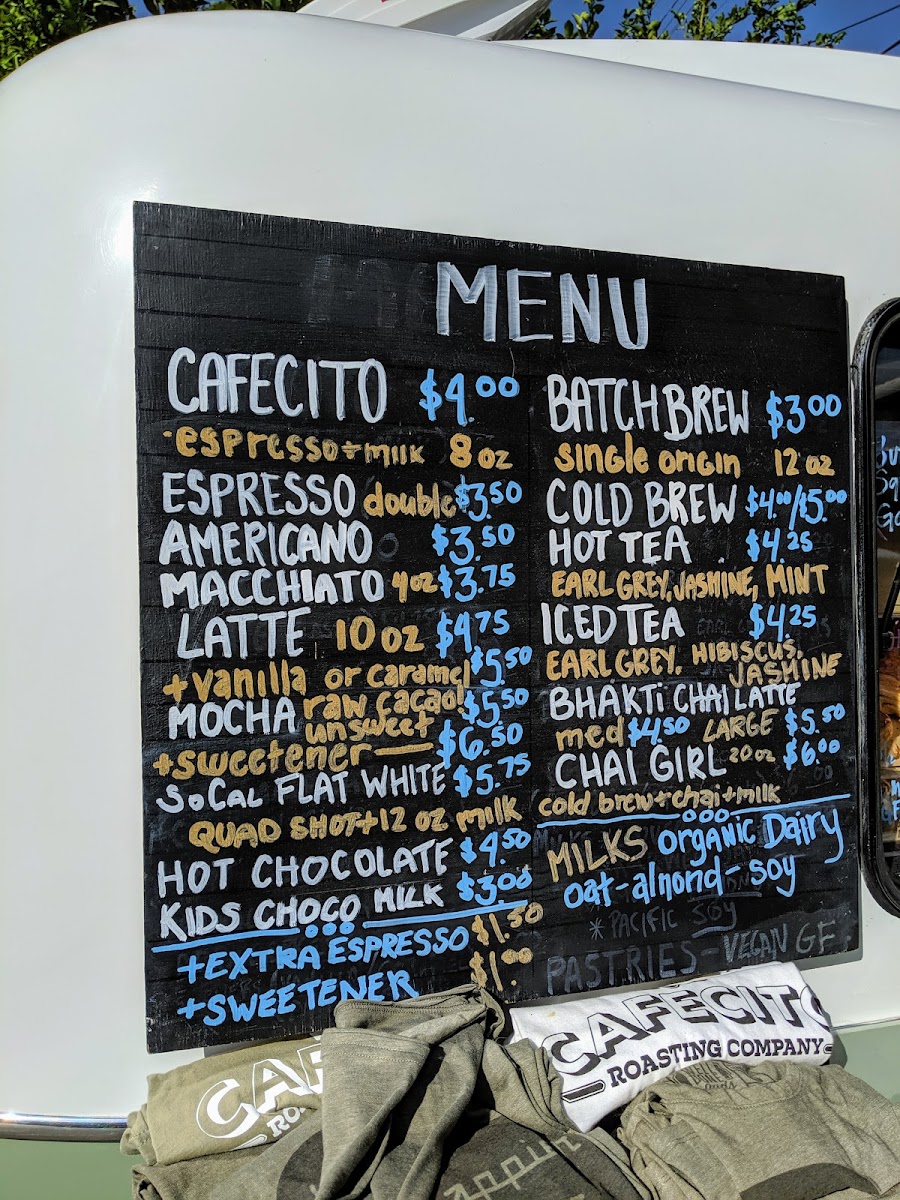 MENU
CAFECITO $4.00
·espresso+milk 8 oz
ESPRESSO double $3.50
AMERICANO $3.50
MACCHIATO 4oz $3.75
LATTE 10 oz $4.75
+vanilla or caramel $5.50
MOCHA raw cacao! unsweet $5.50
+sweetener — $6.50
SoCal FLAT WHITE $5.75
QUAD SHOT+12 oz milk
HOT CHOCOLATE $4.50
KIDS CHOCO MILK $3.00
+EXTRA ESPRESSO $1.50
+SWEETENER $1.00
BATCH BREW $3.00
single origin 12 oz
COLD BREW $4.00/$5.00
HOT TEA $4.25
EARL GREY, JASMINE, MINT
ICED TEA $4.25
EARL GREY. HIBISCUS.
JASMINE
BHAKTi CHAI LATTE
med $4.50 LARGE $5.50
CHAI GIRL 20 oz $6.00
cold brew+chai+milk
MILKS organic Dairy
oat-almond-soy
* PACIFIC SOY
PASTRIES-VEGAN GF
CAFÉCITO
ROASTING COMPANY
CAF
RO